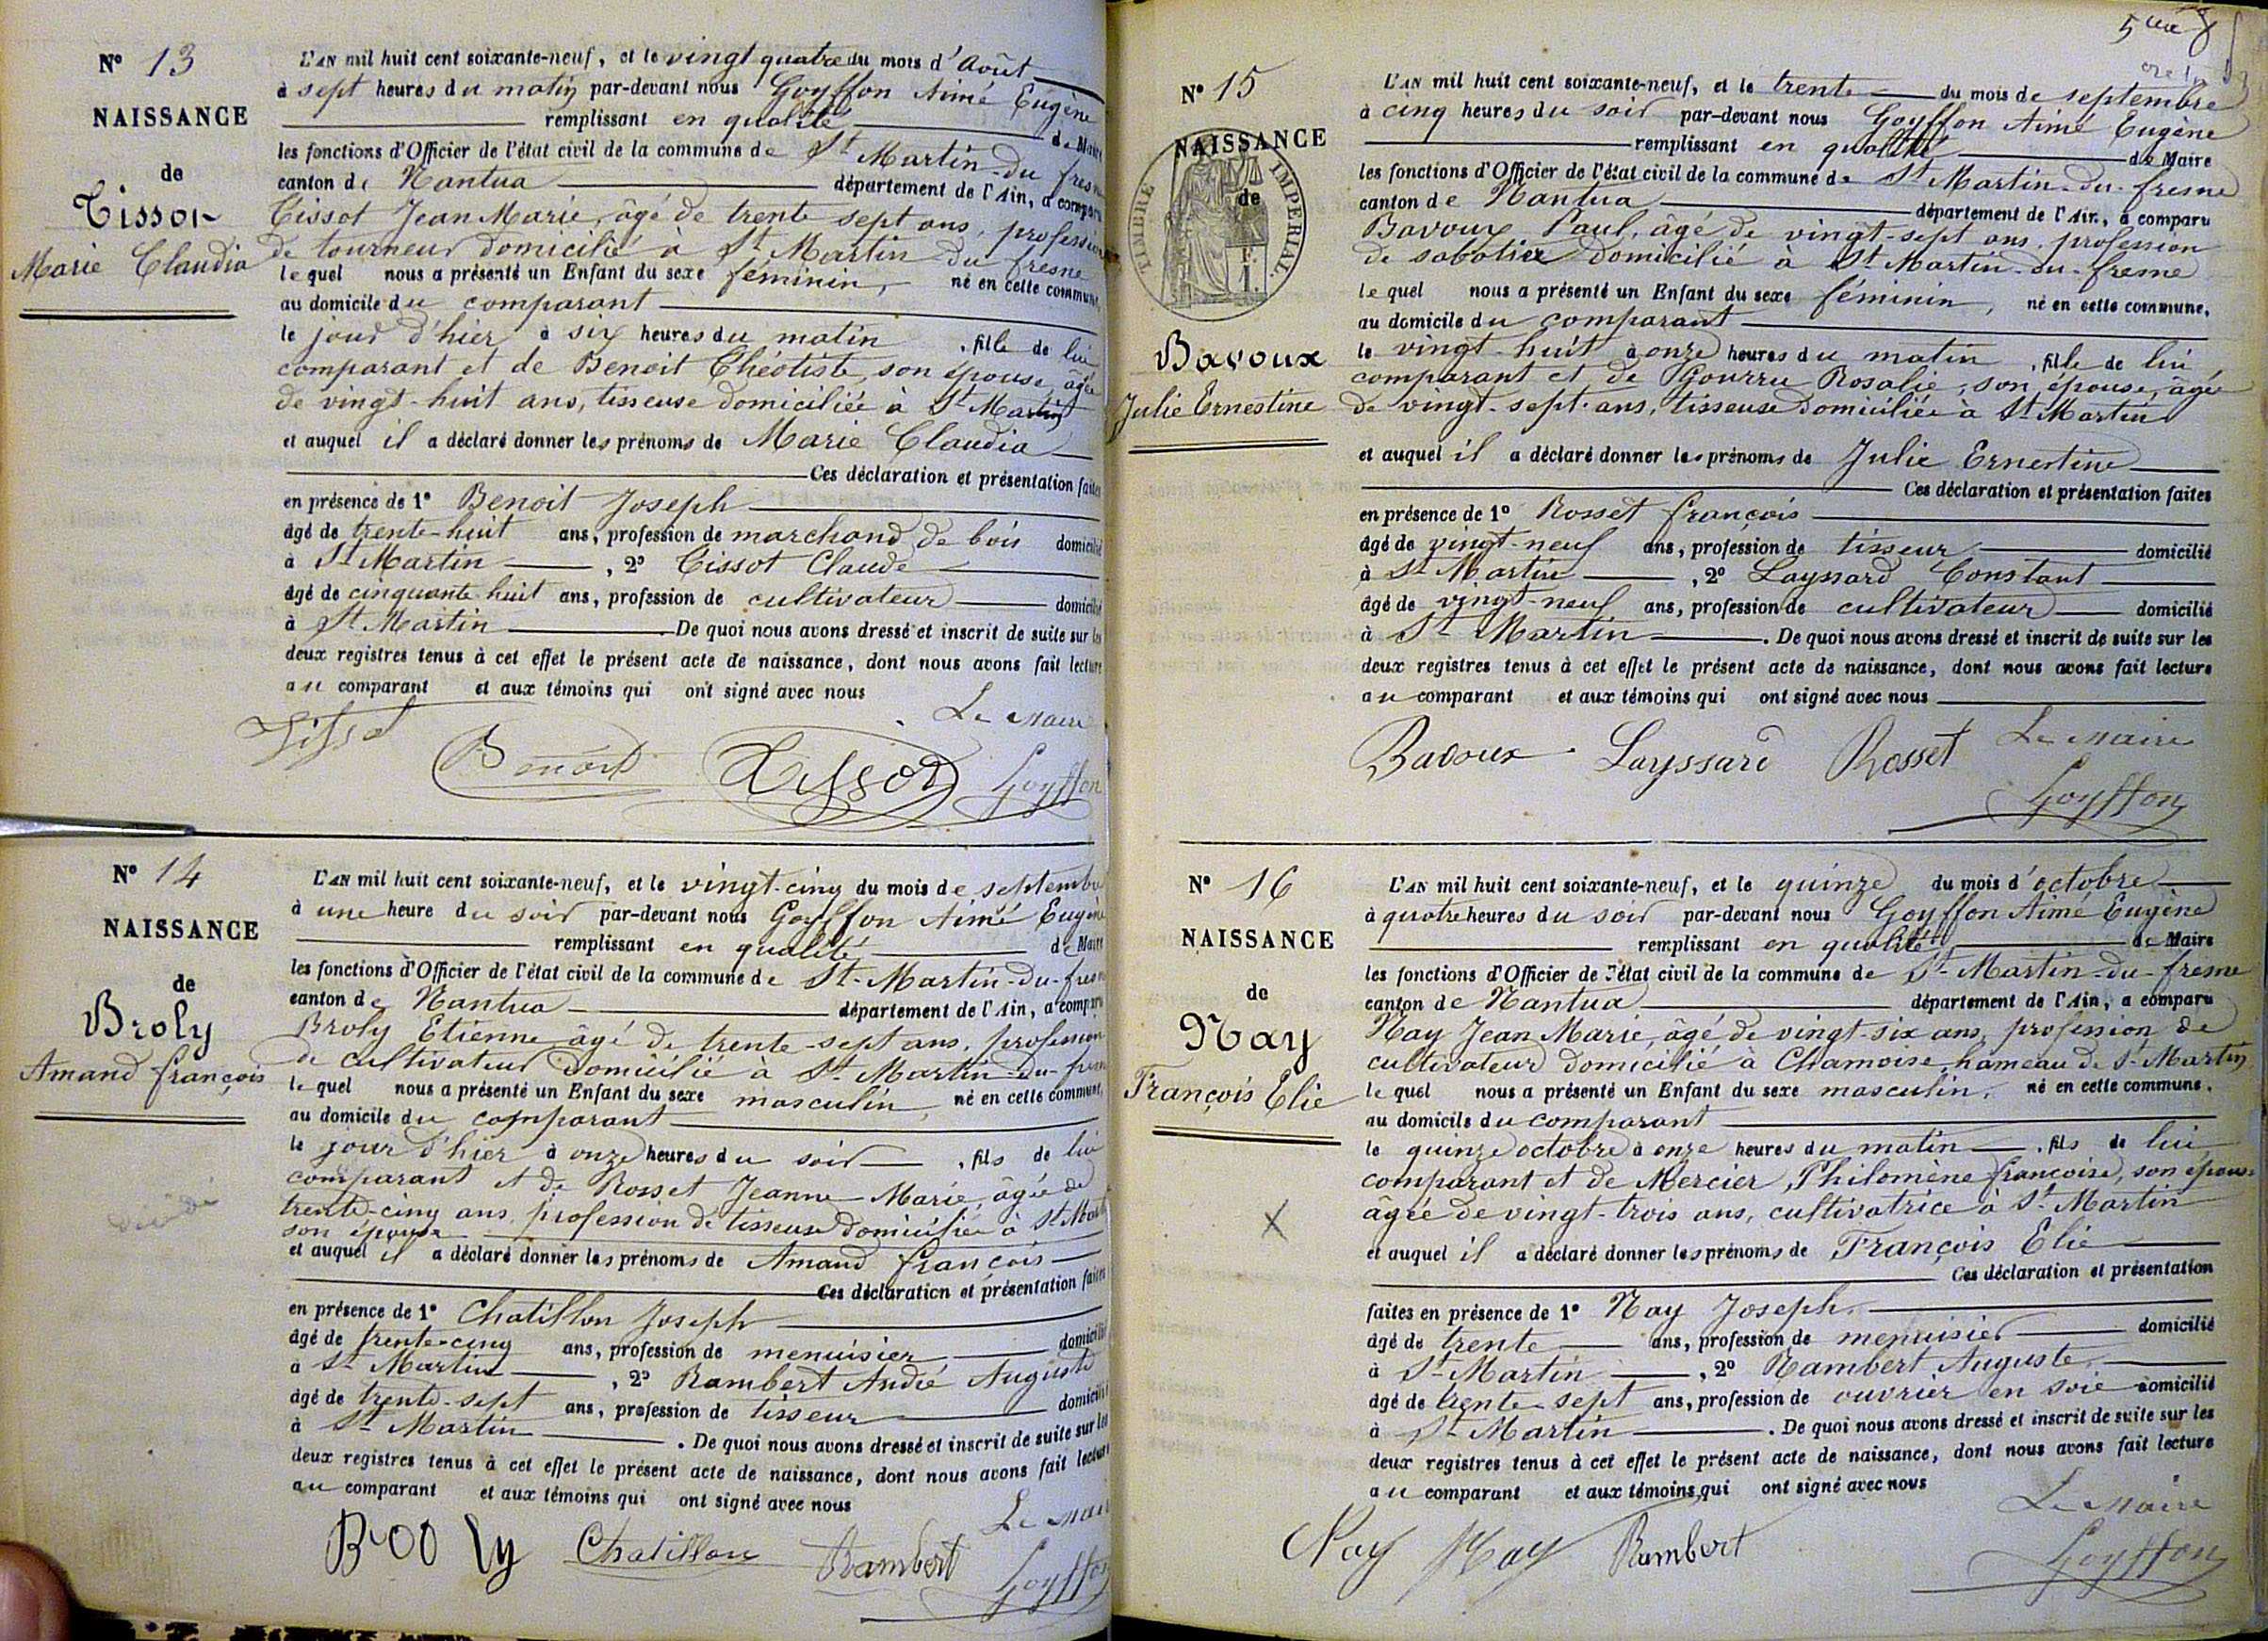 Nº 13
NAISSANCE
de
Tissot
Marie Claudia
L'AN mil huit cent soixante-neuf, et le vingt quatre du mois d'Août
à sept heures du matin par-devant nous Goyffon Aimé Eugène
remplissant en qualité de Maire
les fonctions d'Officier de l'état civil de la commune de St Martin-du fresne
canton de Nantua département de l'Ain, a comparu
Tissot Jean Marie, âgé de trente sept ans, profession
de tourneur domicilié à St Martin du fresne
lequel nous a présenté un Enfant du sexe féminin, né en cette commune,
au domicile du comparant
le jour d'hier à six heures du matin, fille de lui
comparant et de Benoit Théotiste, son épouse, âgée
de vingt-huit ans, tisseuse domiciliée à St Martin
et auquel il a déclaré donner les prénoms de Marie Claudia
Ces déclaration et présentation faites
en présence de 1º Benoit Joseph
âgé de trente-huit ans, profession de marchand de bois domicilié
à St Martin, 2º Tissot Claude
âgé de cinquante huit ans, profession de cultivateur domicilié
à St Martin De quoi nous avons dressé et inscrit de suite sur les
deux registres tenus à cet effet le présent acte de naissance, dont nous avons fait lecture
au comparant et aux témoins qui ont signé avec nous
Le Maire
Tissot Benoit Tissot Goyffon
Nº 14
NAISSANCE
de
Broly
Amand françois
L'AN mil huit cent soixante-neuf, et le vingt-cinq du mois de septembre
à une heure du soir par-devant nous Goyffon Aimé Eugène
remplissant en qualité de Maire
les fonctions d'Officier de l'état civil de la commune de St-Martin-du-fresne
canton de Nantua département de l'Ain, a comparu
Broly Etienne âgé de trente-sept ans, profession
de cultivateur domicilié à St-Martin-du-fresne
lequel nous a présenté un Enfant du sexe masculin, né en cette commune,
au domicile du comparant
le jour d'hier à onze heures du soir, fils de lui
comparant et de Rosset Jeanne-Marie, âgée de
trente-cinq ans, profession de tisseuse domiciliée à St Martin
son épouse
et auquel il a déclaré donner les prénoms de Amand françois
Ces déclaration et présentation faites
en présence de 1º Chatillon Joseph
âgé de trente-cinq ans, profession de menuisier domicilié
à St Martin, 2º Rambert André Auguste
âgé de trente-sept ans, profession de tisseur domicilié
à St Martin. De quoi nous avons dressé et inscrit de suite sur les
deux registres tenus à cet effet le présent acte de naissance, dont nous avons fait lecture
au comparant et aux témoins qui ont signé avec nous
Le Maire
Brooly Chatillon Rambert Goyffon
Nº 15
NAISSANCE
de
TIMBRE IMPERIAL.
1 F.
Bavoux
Julie Ernestine
L'AN mil huit cent soixante-neuf, et le trente du mois de septembre
à cinq heures du soir par-devant nous Goyffon Aimé Eugène
remplissant en qualité de Maire
les fonctions d'Officier de l'état civil de la commune de St Martin-du-fresne
canton de Nantua département de l'Ain, a comparu
Bavoux Paul, âgé de vingt-sept ans, profession
de sabotier domicilié à St Martin-du-fresne
lequel nous a présenté un Enfant du sexe féminin, né en cette commune,
au domicile du comparant
le vingt-huit à onze heures du matin, fille de lui
comparant et de Gourru Rosalie, son épouse, âgée
de vingt-sept ans, tisseuse domiciliée à St Martin
et auquel il a déclaré donner les prénoms de Julie Ernestine
Ces déclaration et présentation faites
en présence de 1º Rosset françois
âgé de vingt-neuf ans, profession de tisseur domicilié
à St Martin, 2º Layssard Constant
âgé de vingt-neuf ans, profession de cultivateur domicilié
à St Martin. De quoi nous avons dressé et inscrit de suite sur les
deux registres tenus à cet effet le présent acte de naissance, dont nous avons fait lecture
au comparant et aux témoins qui ont signé avec nous
Bavoux Layssard Rosset Le Maire
Goyffon
Nº 16
NAISSANCE
de
Nay
François Elie
L'AN mil huit cent soixante-neuf, et le quinze du mois d'octobre
à quatre heures du soir par-devant nous Goyffon Aimé Eugène
remplissant en qualité de Maire
les fonctions d'Officier de l'état civil de la commune de St-Martin-du-fresne
canton de Nantua département de l'Ain, a comparu
Nay Jean Marie, âgé de vingt-six ans, profession de
cultivateur domicilié à Chamoise, hameau de St Martin
lequel nous a présenté un Enfant du sexe masculin, né en cette commune,
au domicile du comparant
le quinze octobre à onze heures du matin, fils de lui
comparant et de Mercier, Philomène françoise, son épouse
âgée de vingt-trois ans, cultivatrice à St Martin
et auquel il a déclaré donner les prénoms de François Elie
Ces déclaration et présentation
faites en présence de 1º Nay Joseph
âgé de trente ans, profession de menuisier domicilié
à St Martin, 2º Rambert Auguste
âgé de trente sept ans, profession de ouvrier en soie domicilié
à St Martin. De quoi nous avons dressé et inscrit de suite sur les
deux registres tenus à cet effet le présent acte de naissance, dont nous avons fait lecture
au comparant et aux témoins qui ont signé avec nous
Le Maire
Nay Nay Rambert Goyffon